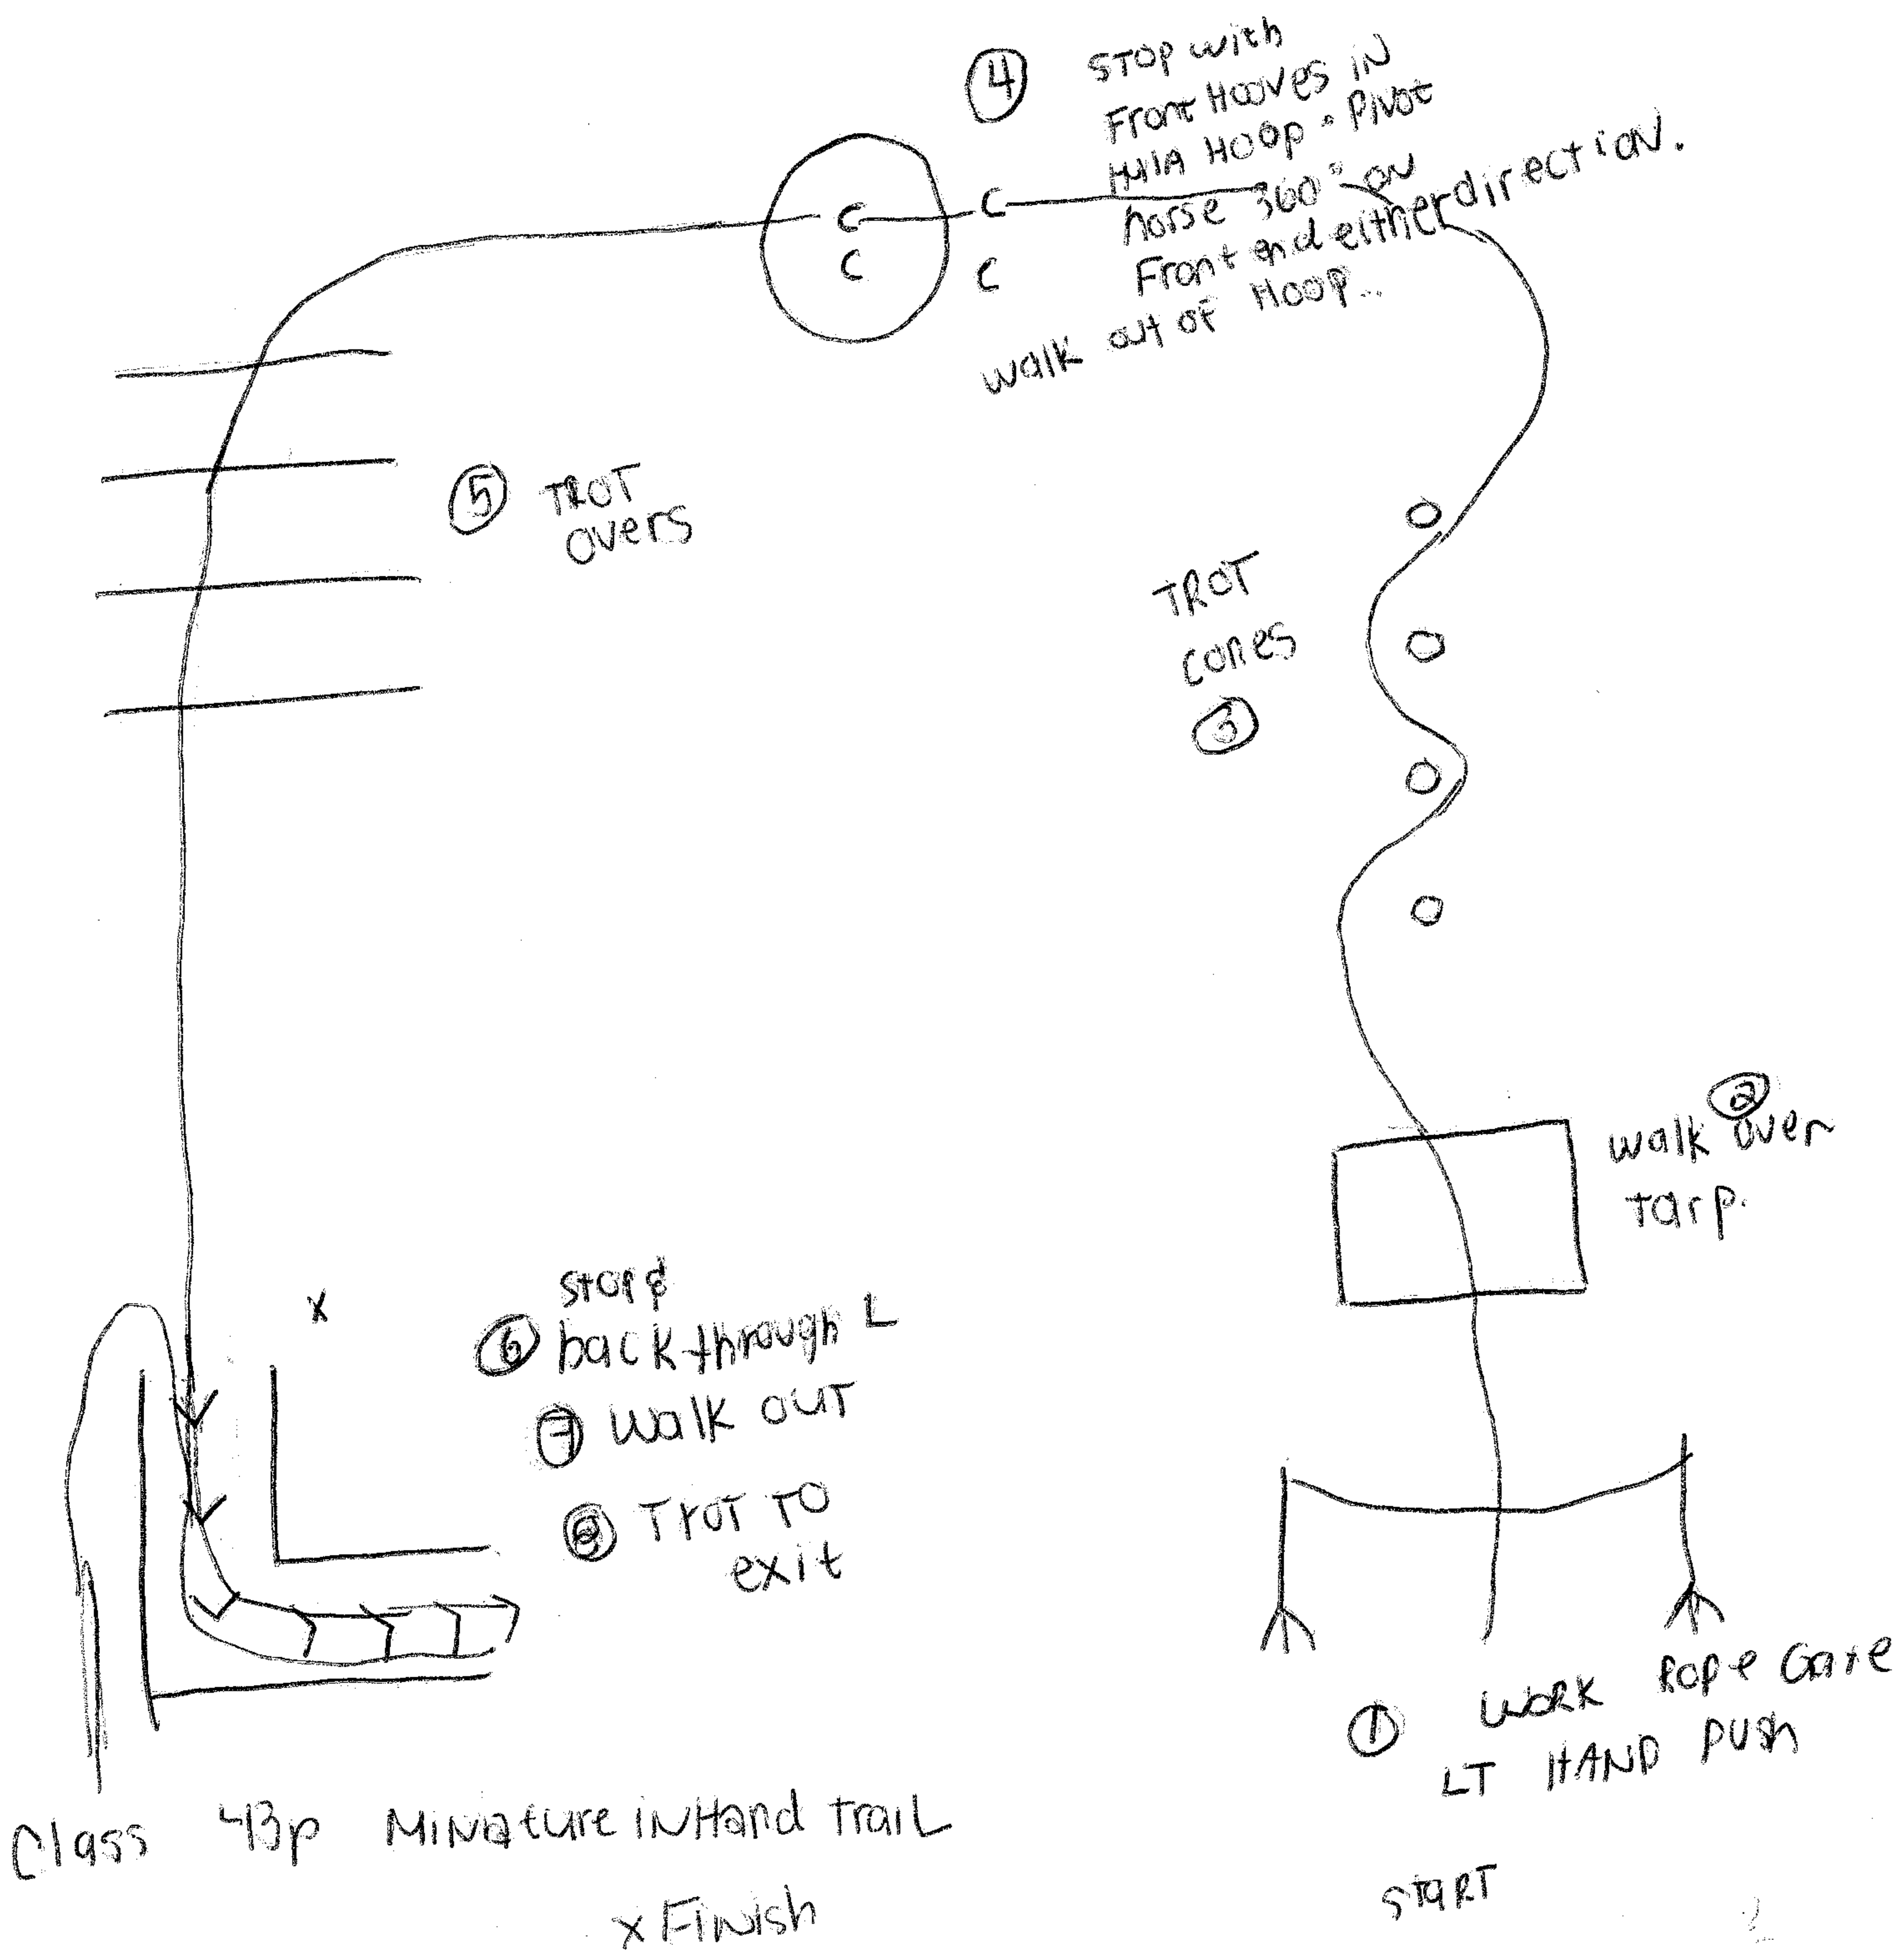 ④ STOP with
Front Hooves IN
HulA Hoop • Pivot
horse 360° on
Front end either direction.
walk out of Hoop..
C C
C C
⑤ TROT
overs
TROT
cones
③
②
walk over
tarp.
x
stop &
⑥ back through L
⑦ walk out
⑧ Trot to
exit
① WORK Rope Gate
LT HAND push
Class 43p Miniature in Hand Trail
x Finish
START